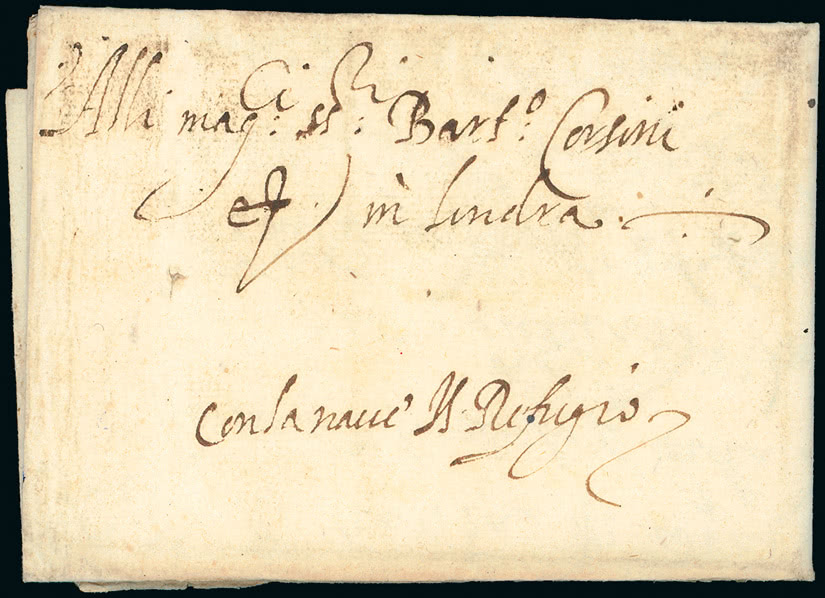 Alli mag:ci ss:ri Bart:o Corsini
et in londra
con la nave Il Refugio